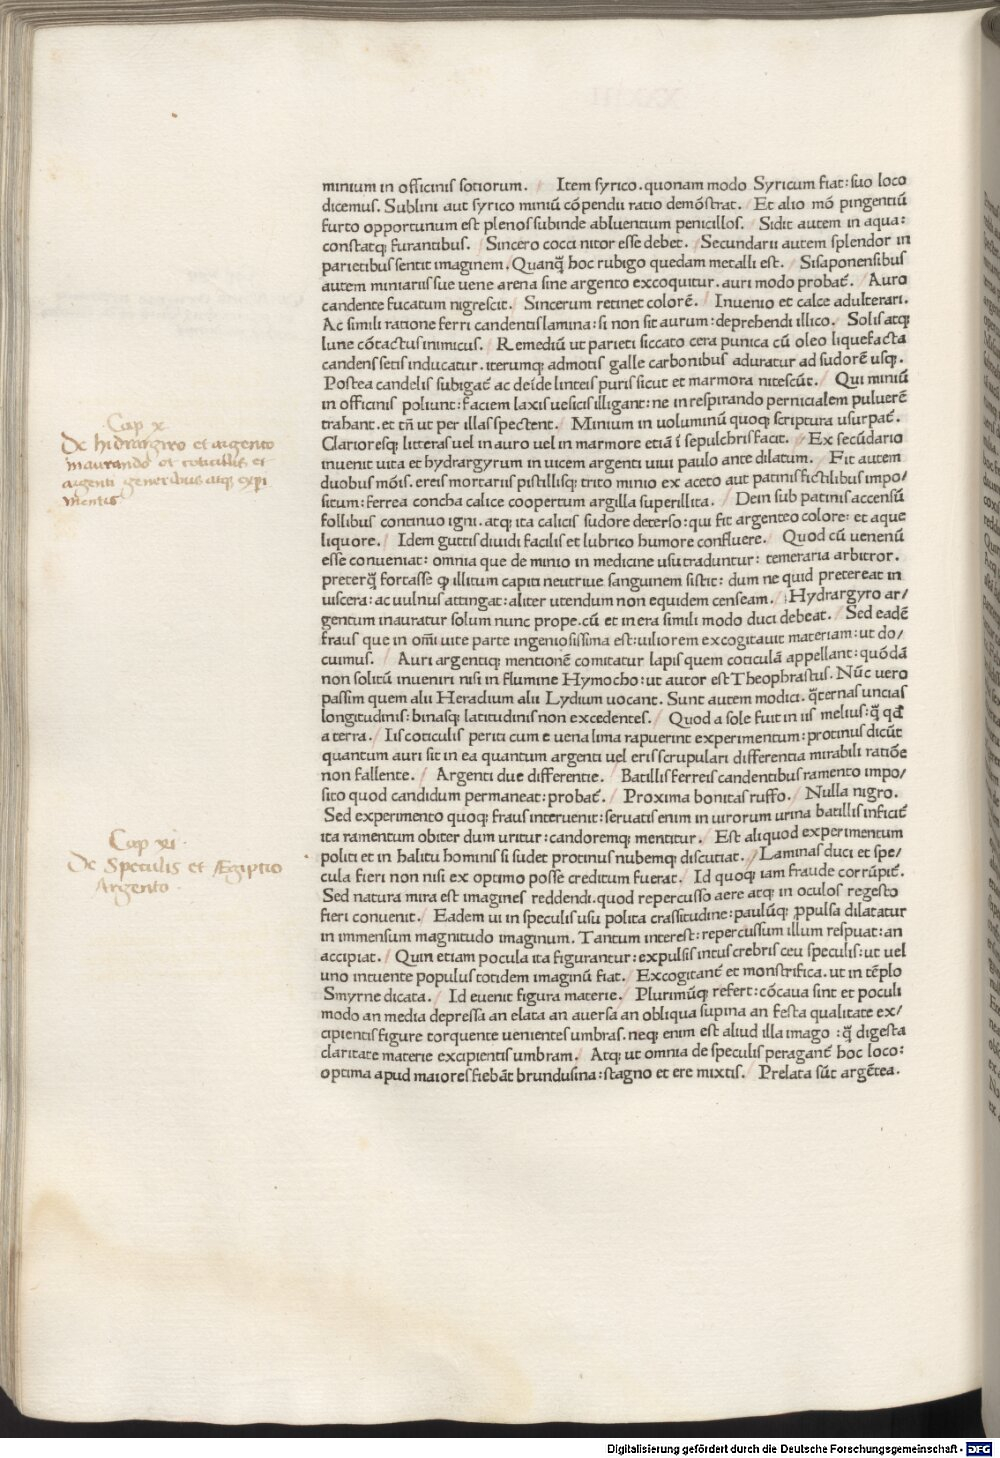 minium in officinis sotiorum. / Item syrico. quonam modo Syricum fiat: suo loco
dicemus. Sublini aut syrico miniũ cõpendii ratio demõstrat. / Et alio mõ pingentiũ
furto opportunum est plenos subinde abluentium penicillos. / Sidit autem in aqua:
constatq; furantibus. / Sincero cocci nitor esse debet. / Secundarii autem splendor in
parietibus sentit imaginem. / Quanq̃ hoc rubigo quedam metalli est. / Sisaponensibus
autem miniariis sue uene arena sine argento excoquitur. auri modo probat̃. / Auro
candente fucatum nigrescit. / Sincerum retinet colorẽ. / Inuenio et calce adulterari.
Ac simili ratione ferri candentis lamina: si non sit aurum: deprehendi illico. / Solis atq;
lune cõtactus inimicus. / Remediũ ut parieti siccato cera punica cũ oleo liquefacta
candens setis inducatur. iterumq; admotis galle carbonibus aduratur ad sudorẽ usq;.
Postea candelis subigat̃ ac deĩde linteis puris sicut et marmora nitescũt. / Qui miniũ
in officinis poliunt: faciem laxis uesicis illigant: ne in respirando pernicialem puluerẽ
trahant. et tñ ut per illas spectent. / Minium in uoluminũ quoq; scriptura usurpat̃.
Clarioresq; litteras uel in auro uel in marmore etiã ĩ sepulchris facit. / Ex secũdario
inuenit uita et hydrargyrum in uicem argenti uiui paulo ante dilatum. / Fit autem
duobus mõis. ereis mortariis pistillisq; trito minio ex aceto aut patinis fictilibus impo/
situm: ferrea concha calice coopertum argilla superillita. / Dein sub patinis accensũ
follibus continuo igni. atq; ita calicis sudore deterso: qui fit argenteo colore: et aque
liquore. / Idem guttis diuidi facilis et lubrico humore confluere. / Quod cũ uenenũ
esse conueniat: omnia que de minio in medicine usu traduntur: temeraria arbitror.
preterq̃ fortasse ꝙ illitum capiti uentriue sanguinem sistit: dum ne quid pretereat in
uiscera: ac uulnus attingat: aliter utendum non equidem censeam. / Hydrargyro ar/
gentum inauratur solum nunc prope. cũ et in era simili modo duci debeat. / Sed eadẽ
fraus que in om̃i uite parte ingeniosissima est: uiliorem excogitauit materiam: ut do/
cuimus. / Auri argentiq; mentionẽ comitatur lapis quem coticulã appellant: quõdã
non solitũ inueniri nisi in flumine Hymocho: ut autor est Theophrastus. Nũc uero
passim quem alii Heradium alii Lydium uocant. Sunt autem modici. q̃ternas uncias
longitudinis: binasq; latitudinis non excedentes. / Quod a sole fuit in iis melius: q̃ qđ
a terra. / Iis coticulis periti cum e uena lima rapuerint experimentum: protinus dicũt
quantum auri sit in ea quantum argenti uel eris scrupulari differentia mirabili ratiõe
non fallente. / Argenti due differentie. / Batillis ferreis candentibus ramento impo/
sito quod candidum permaneat: probat̃. / Proxima bonitas ruffo. / Nulla nigro.
Sed experimento quoq; fraus interuenit: seruatis enim in uirorum urina batillis inficit̃
ita ramentum obiter dum uritur: candoremq; mentitur. / Est aliquod experimentum
politi et in halitu hominis si sudet protinus nubemq; discutiat. / Laminas duci et spe/
cula fieri non nisi ex optimo posse creditum fuerat. / Id quoq; iam fraude corrũpit̃.
Sed natura mira est imagines reddendi. quod repercusso aere atq; in oculos regesto
fieri conuenit. / Eadem ui in speculis usu polita crassitudine: paulũq; ꝓpulsa dilatatur
in immensum magnitudo imaginum. Tantum interest: repercussum illum respuat: an
accipiat. / Quin etiam pocula ita figurantur: expulsis intus crebris ceu speculis: ut uel
uno intuente populus totidem imaginũ fiat. / Excogitant̃ et monstrifica. ut in tẽplo
Smyrne dicata. / Id euenit figura materie. / Plurimũq; refert: cõcaua sint et poculi
modo an media depressa an elata an auersa an obliqua supina an festa qualitate ex/
cipientis figure torquente uenientes umbras. neq; enim est aliud illa imago : q̃ digesta
claritate materie excipientis umbram. / Atq; ut omnia de speculis peragant̃ hoc loco:
optima apud maiores fiebãt brundusina: stagno et ere mixtis. / Prelata sũt argẽtea.
Cap x.
De hidrargiro et argento
inaurando et coticullis et
argenti generibus atq; expi
mentis
Cap xi.
De Speculis et Ægiptio
Argento.
Digitalisierung gefördert durch die Deutsche Forschungsgemeinschaft - DFG